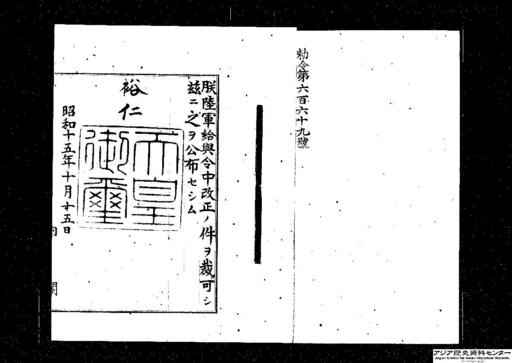 勅令第六百六十九號
朕陸軍給與令中改正ノ件ヲ裁可シ
茲ニ之ヲ公布セシム
裕仁
天皇御璽
昭和十五年十月十五日
内閣
アジア歴史資料センター
Japan Center for Asian Historical Records